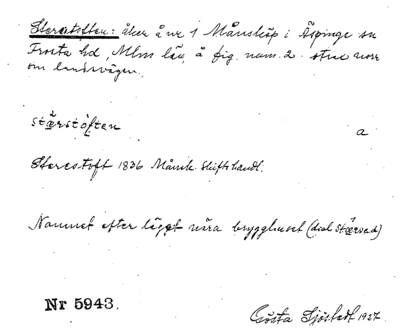 Sterstoften: åker å nr 1 Månstorp i Äspinge sn
Frosta hd, Mlm län, å fig. num. 2. strax norr
om landsvägen.
stärstöften a
Sterestoft 1836 Månst. Skifteshandl.
Namnet efter läget nära brygghuset (dial stärsed)
Nr 5943.
Gösta Sjöstedt 1927